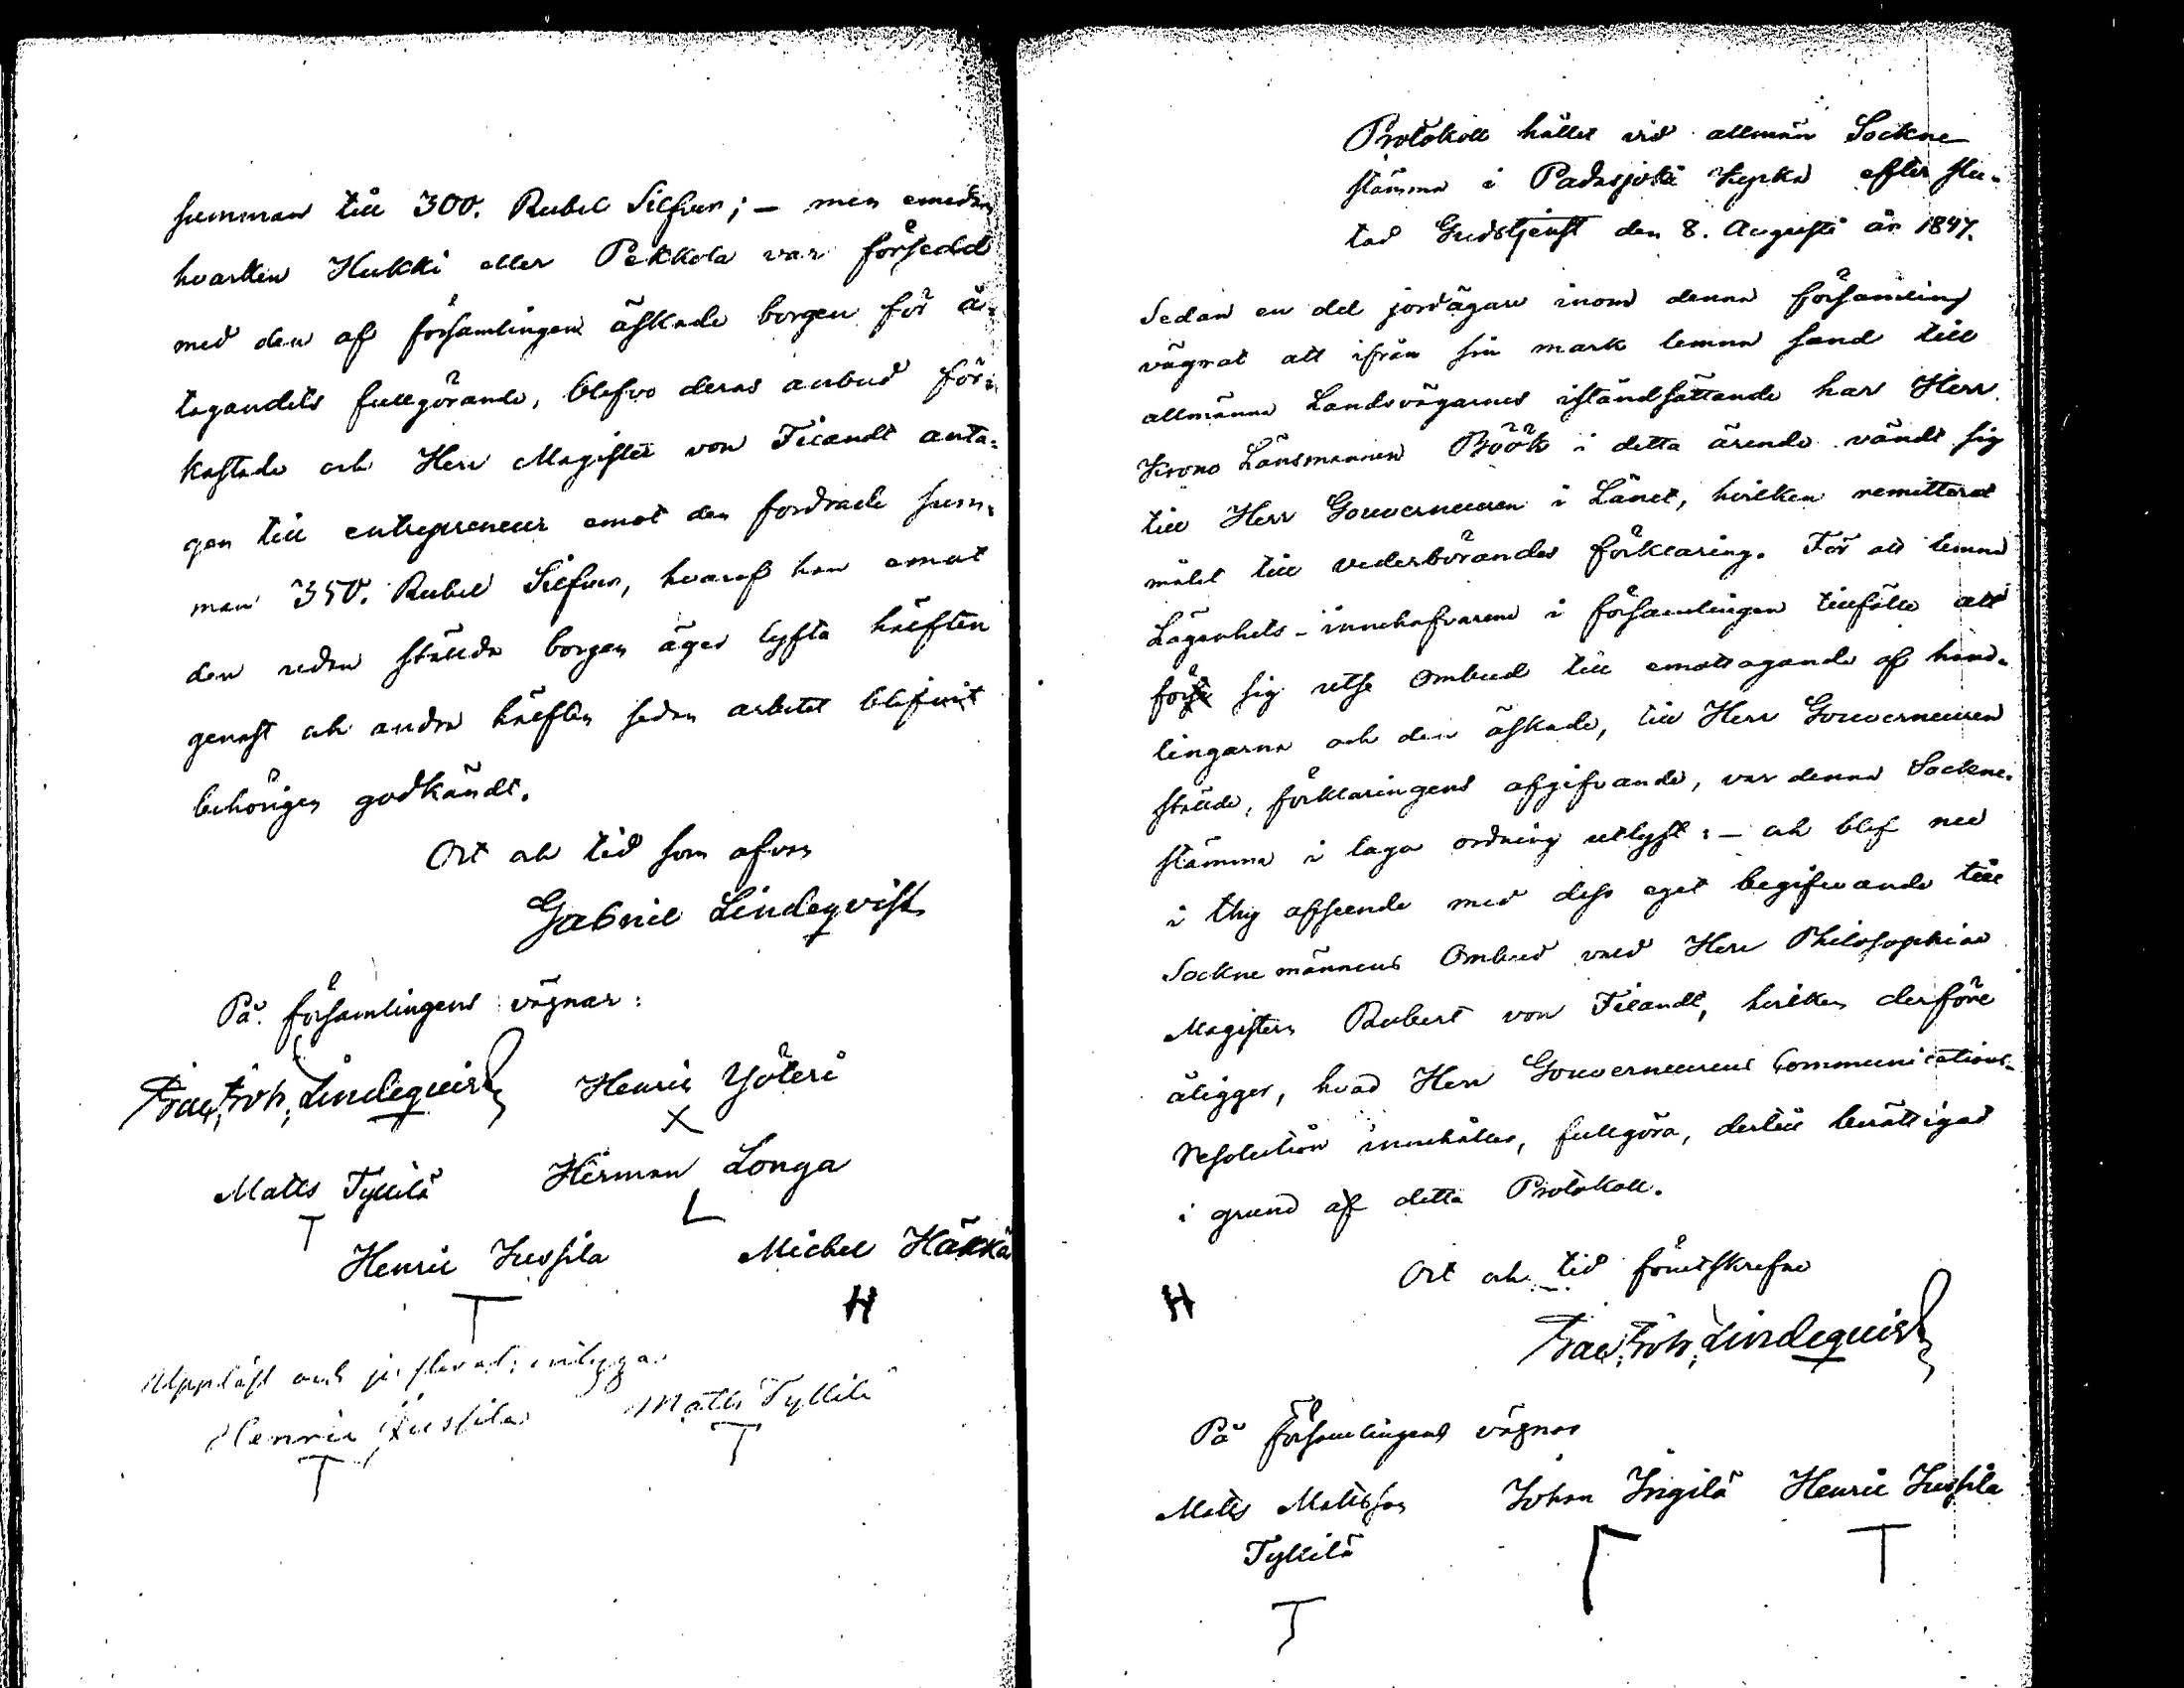 summan till 300. Rubel Silfver; – men emedan
hvarken Hukki eller Pekkola var försedd
med den af församlingen äskade borgen för å-
tagandets fullgörande, blefvo deras anbud för-
kastade och Herr Magister von Fieandt anta-
gen till entrepreneur emot den fordrade sum-
man 350. Rubel Silfver, hvaraf han emot
den redan stälda borgen äger lyfta hälften
genast och andra hälften sedan arbetet blifvit
behörigen godkändt.
Ort och tid som ofvan
Gabriel Lindeqvist
På församlingens vägnar:
Lindequist Henric Yöteri
X
Matts Tyllilä Herman Longa
Henric Jussila Michel Häkkä
H
Uppläst och justerat; intyga
Henric Jussila Matts Tyllilä
Protokoll hållet vid allmän Sockne
stämma i Padasjoki Kyrka efter slu-
tad Gudstjenst den 8. Augusti år 1847.
Sedan en del jordägare inom denna församling
vägrat att ifrån sin mark lemna sand till
allmänna Landsvägarnes iståndsättande har Herr
Krono Länsmannen Böök i detta ärende vändt sig
till Herr Gouverneuren i Länet, hvilken remitterat
målet till vederbörandes förklaring. För att lemna
Lägenhets-innehafvarene i församlingen tillfälle att
för sig utse Ombud till emottagande af hand-
lingarna och den äskade, till Herr Gouverneuren
stälde, förklaringens afgifvande, var denna Sockne-
stämma i laga ordning utlyst: – och blef nu
i thy afseende med dess eget begifvande till
Sockne männens Ombud vald Herr Philosophiae
Magistern Robert von Fieandt, hvilken derföre
åligger, hvad Herr Gouverneurens Communications-
Resolution innehåller, fullgöra, dertill berättigad
i grund af detta Protokoll.
Ort och tid förutskrefne
H
Lindequist
På församlingens vägnar
Matts Mattsson Johan Ingilä Henric Jussila
Tyllilä